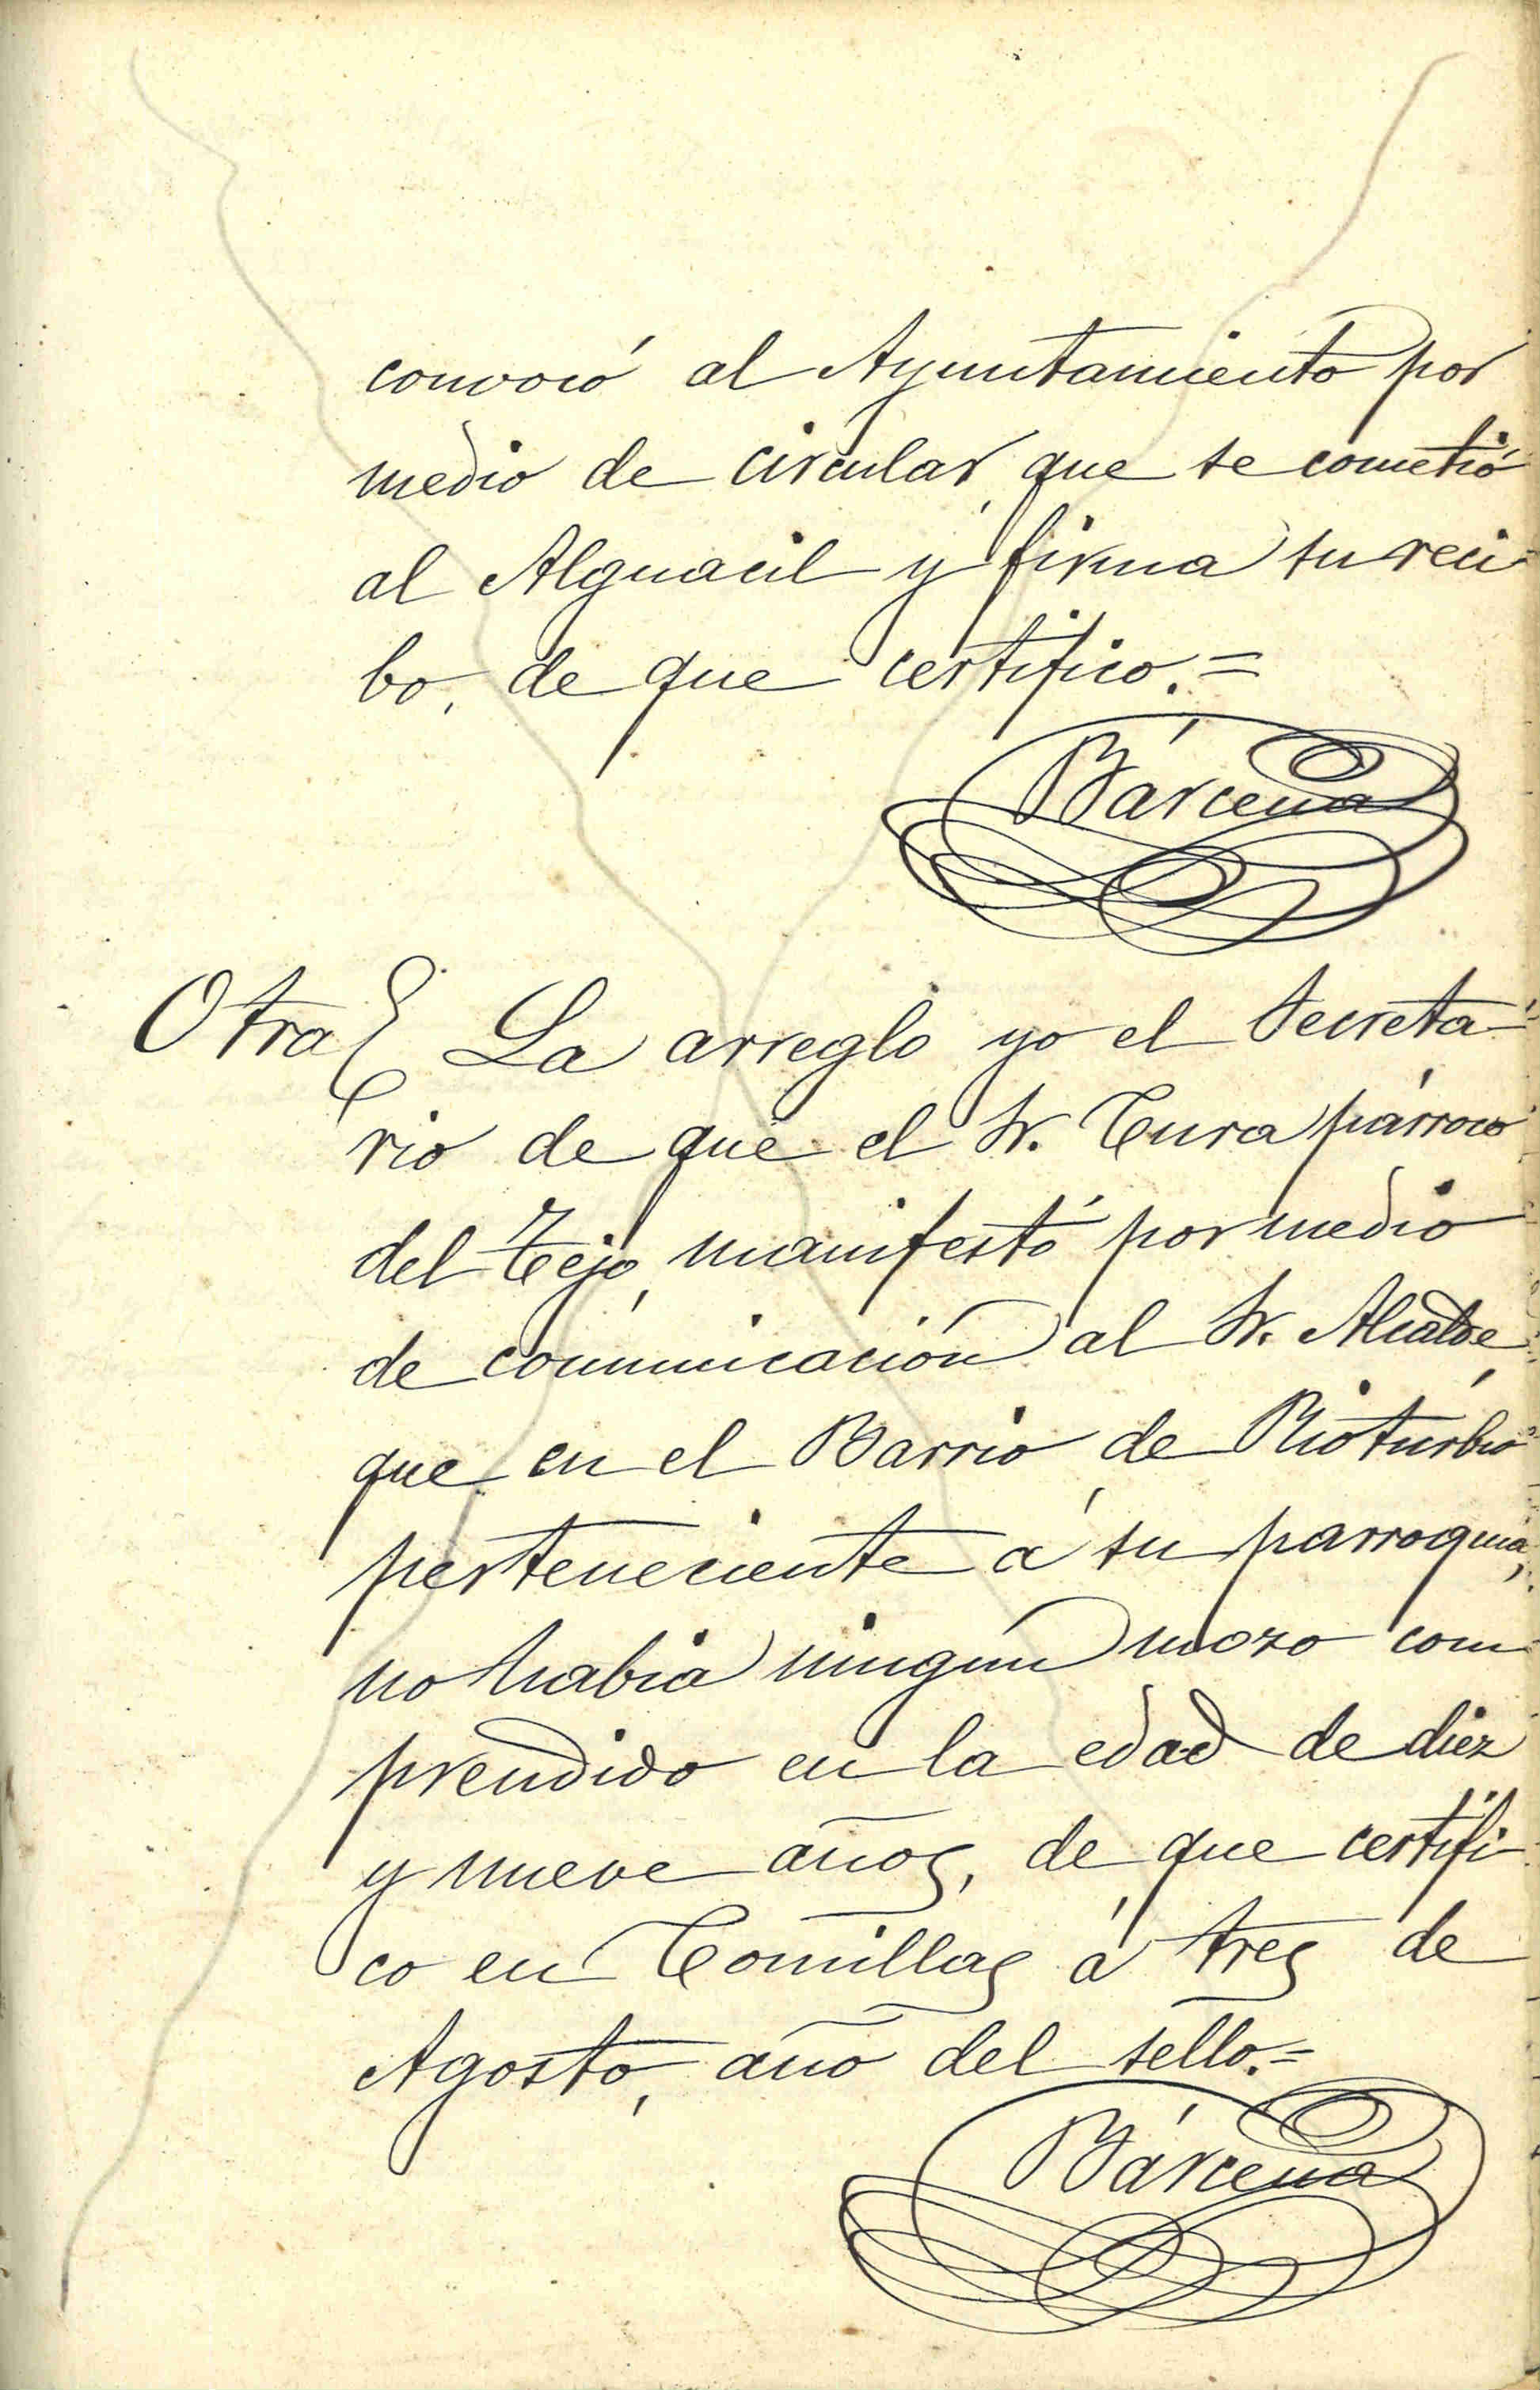 convocó al Ayuntamiento por
medio de circular, que se cometió
al Alguacil y firma su reci-
bo, de que certifico.=
Bárcena
Otra La arreglo yo el Secreta-
rio de que el Sr. Cura párroco
del Tejo, manifestó por medio
de comunicación al Sr. Alcalde,
que en el Barrio, de Rioturbio
perteneciente á su parroquia,
no habia ningún mozo com
prendido en la edad de diez
y nueve años, de que certifi
co en Comillas á tres de
Agosto, año del sello.=
Bárcena